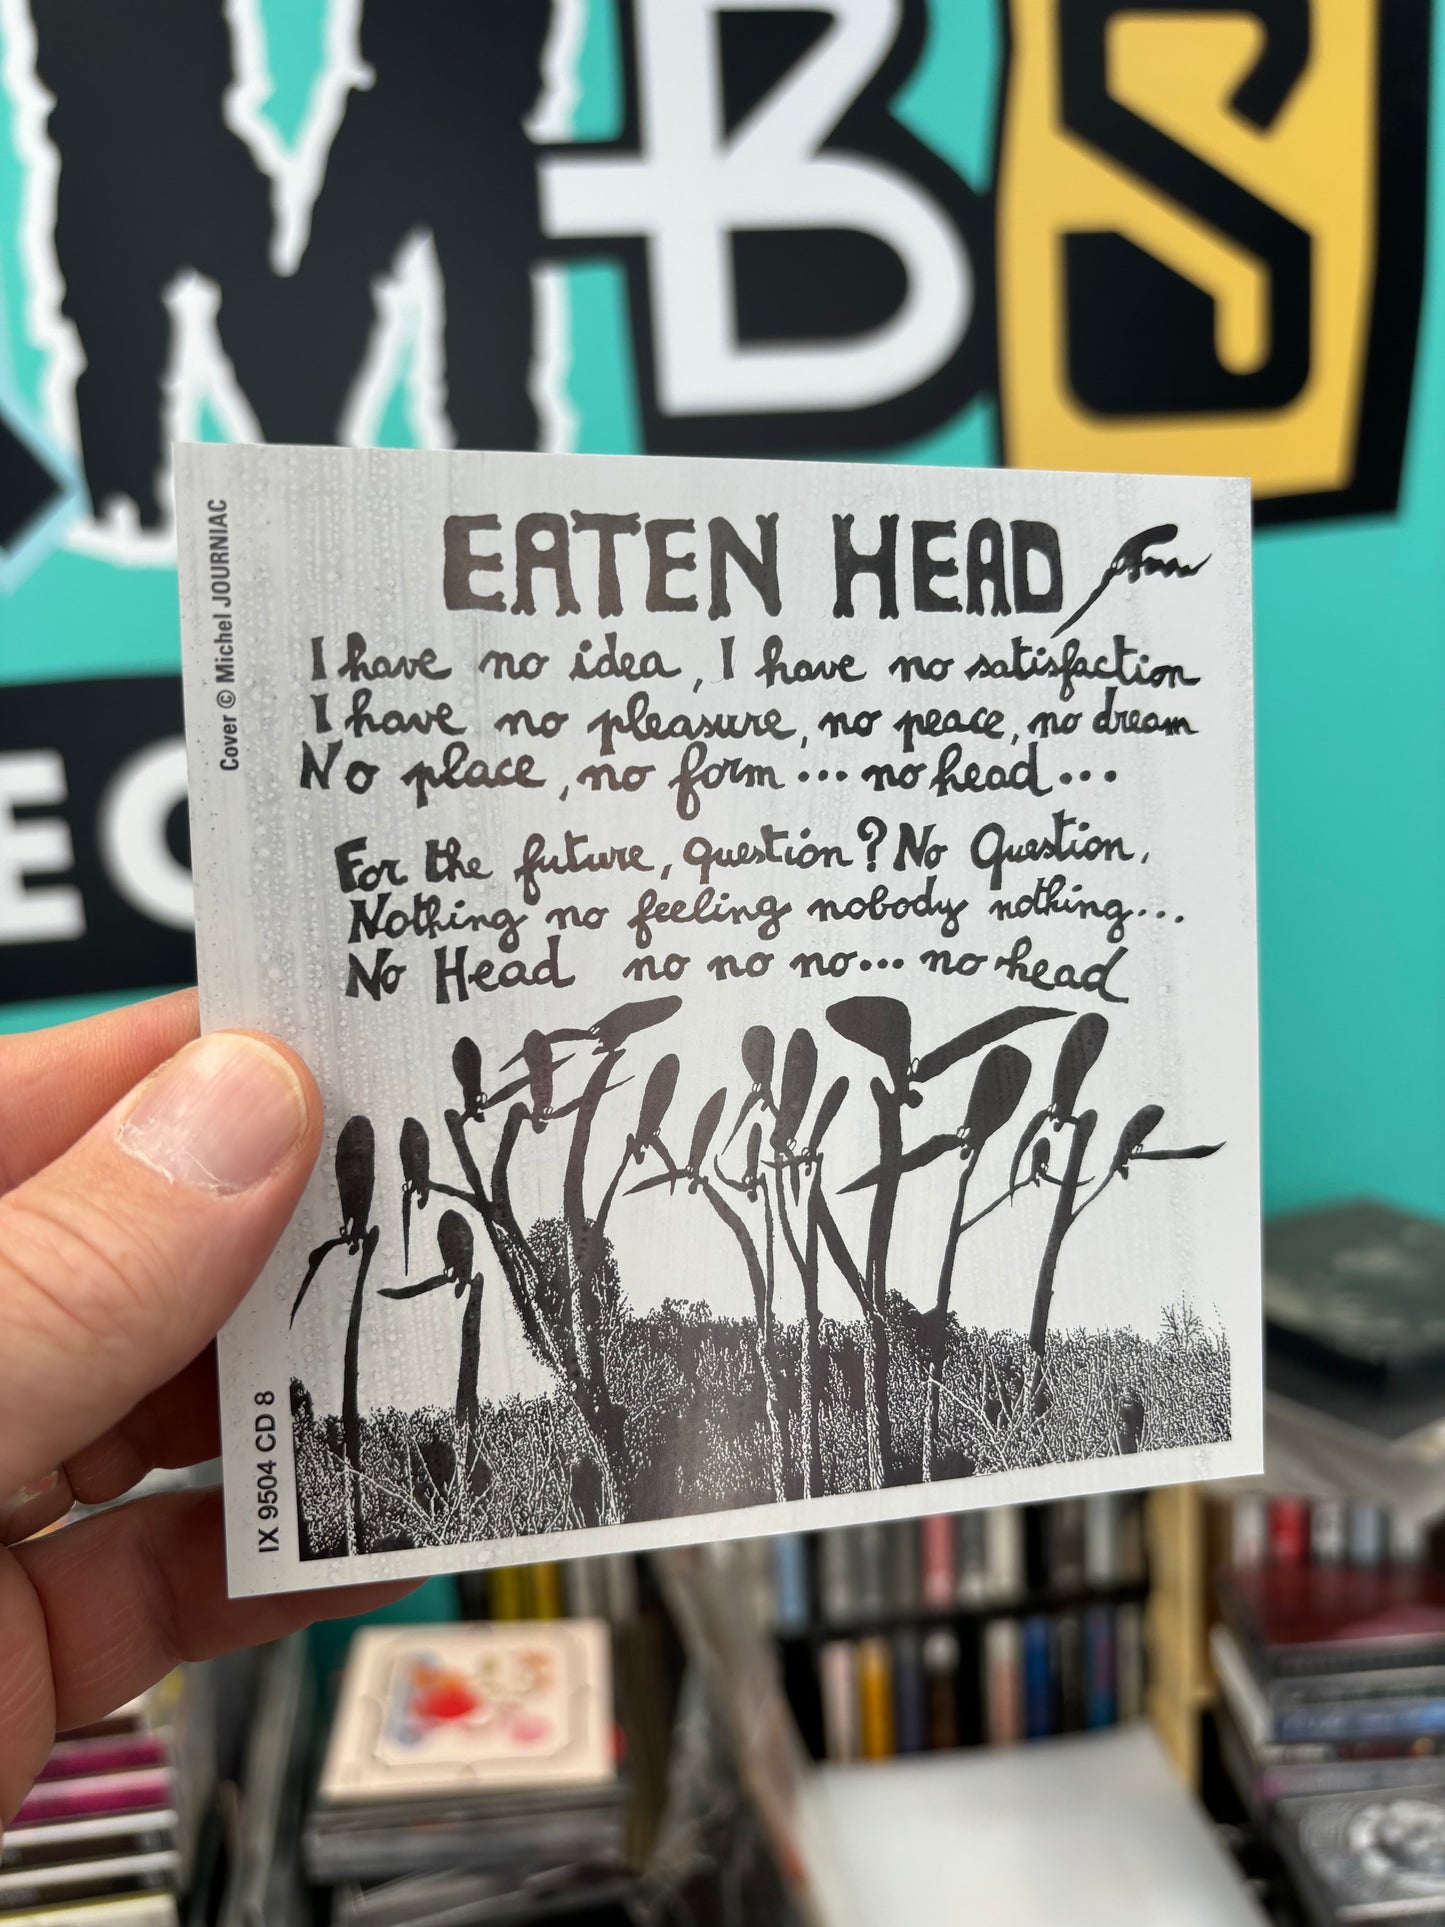 MBS
EC
Cover © Michel JOURNIAC
EATEN HEAD
I have no idea, I have no satisfaction
I have no pleasure, no peace, no dream
No place, no form... no head...
For the future, question? No Question,
Nothing no feeling nobody nothing...
No Head no no no... no head
IX 9504 CD 8